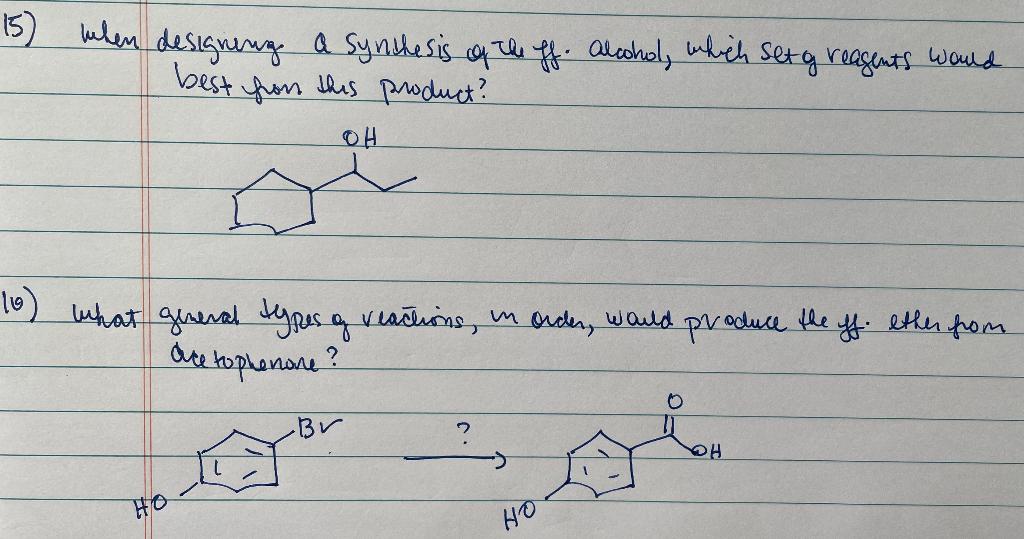 15) when designing a synthesis of the ff. alcohol, which set of reagents would
best from this product?
OH
16) what general types of reactions, in order, would produce the ff. ether from
acetophenone?
Br
?
O
OH
HO
HO